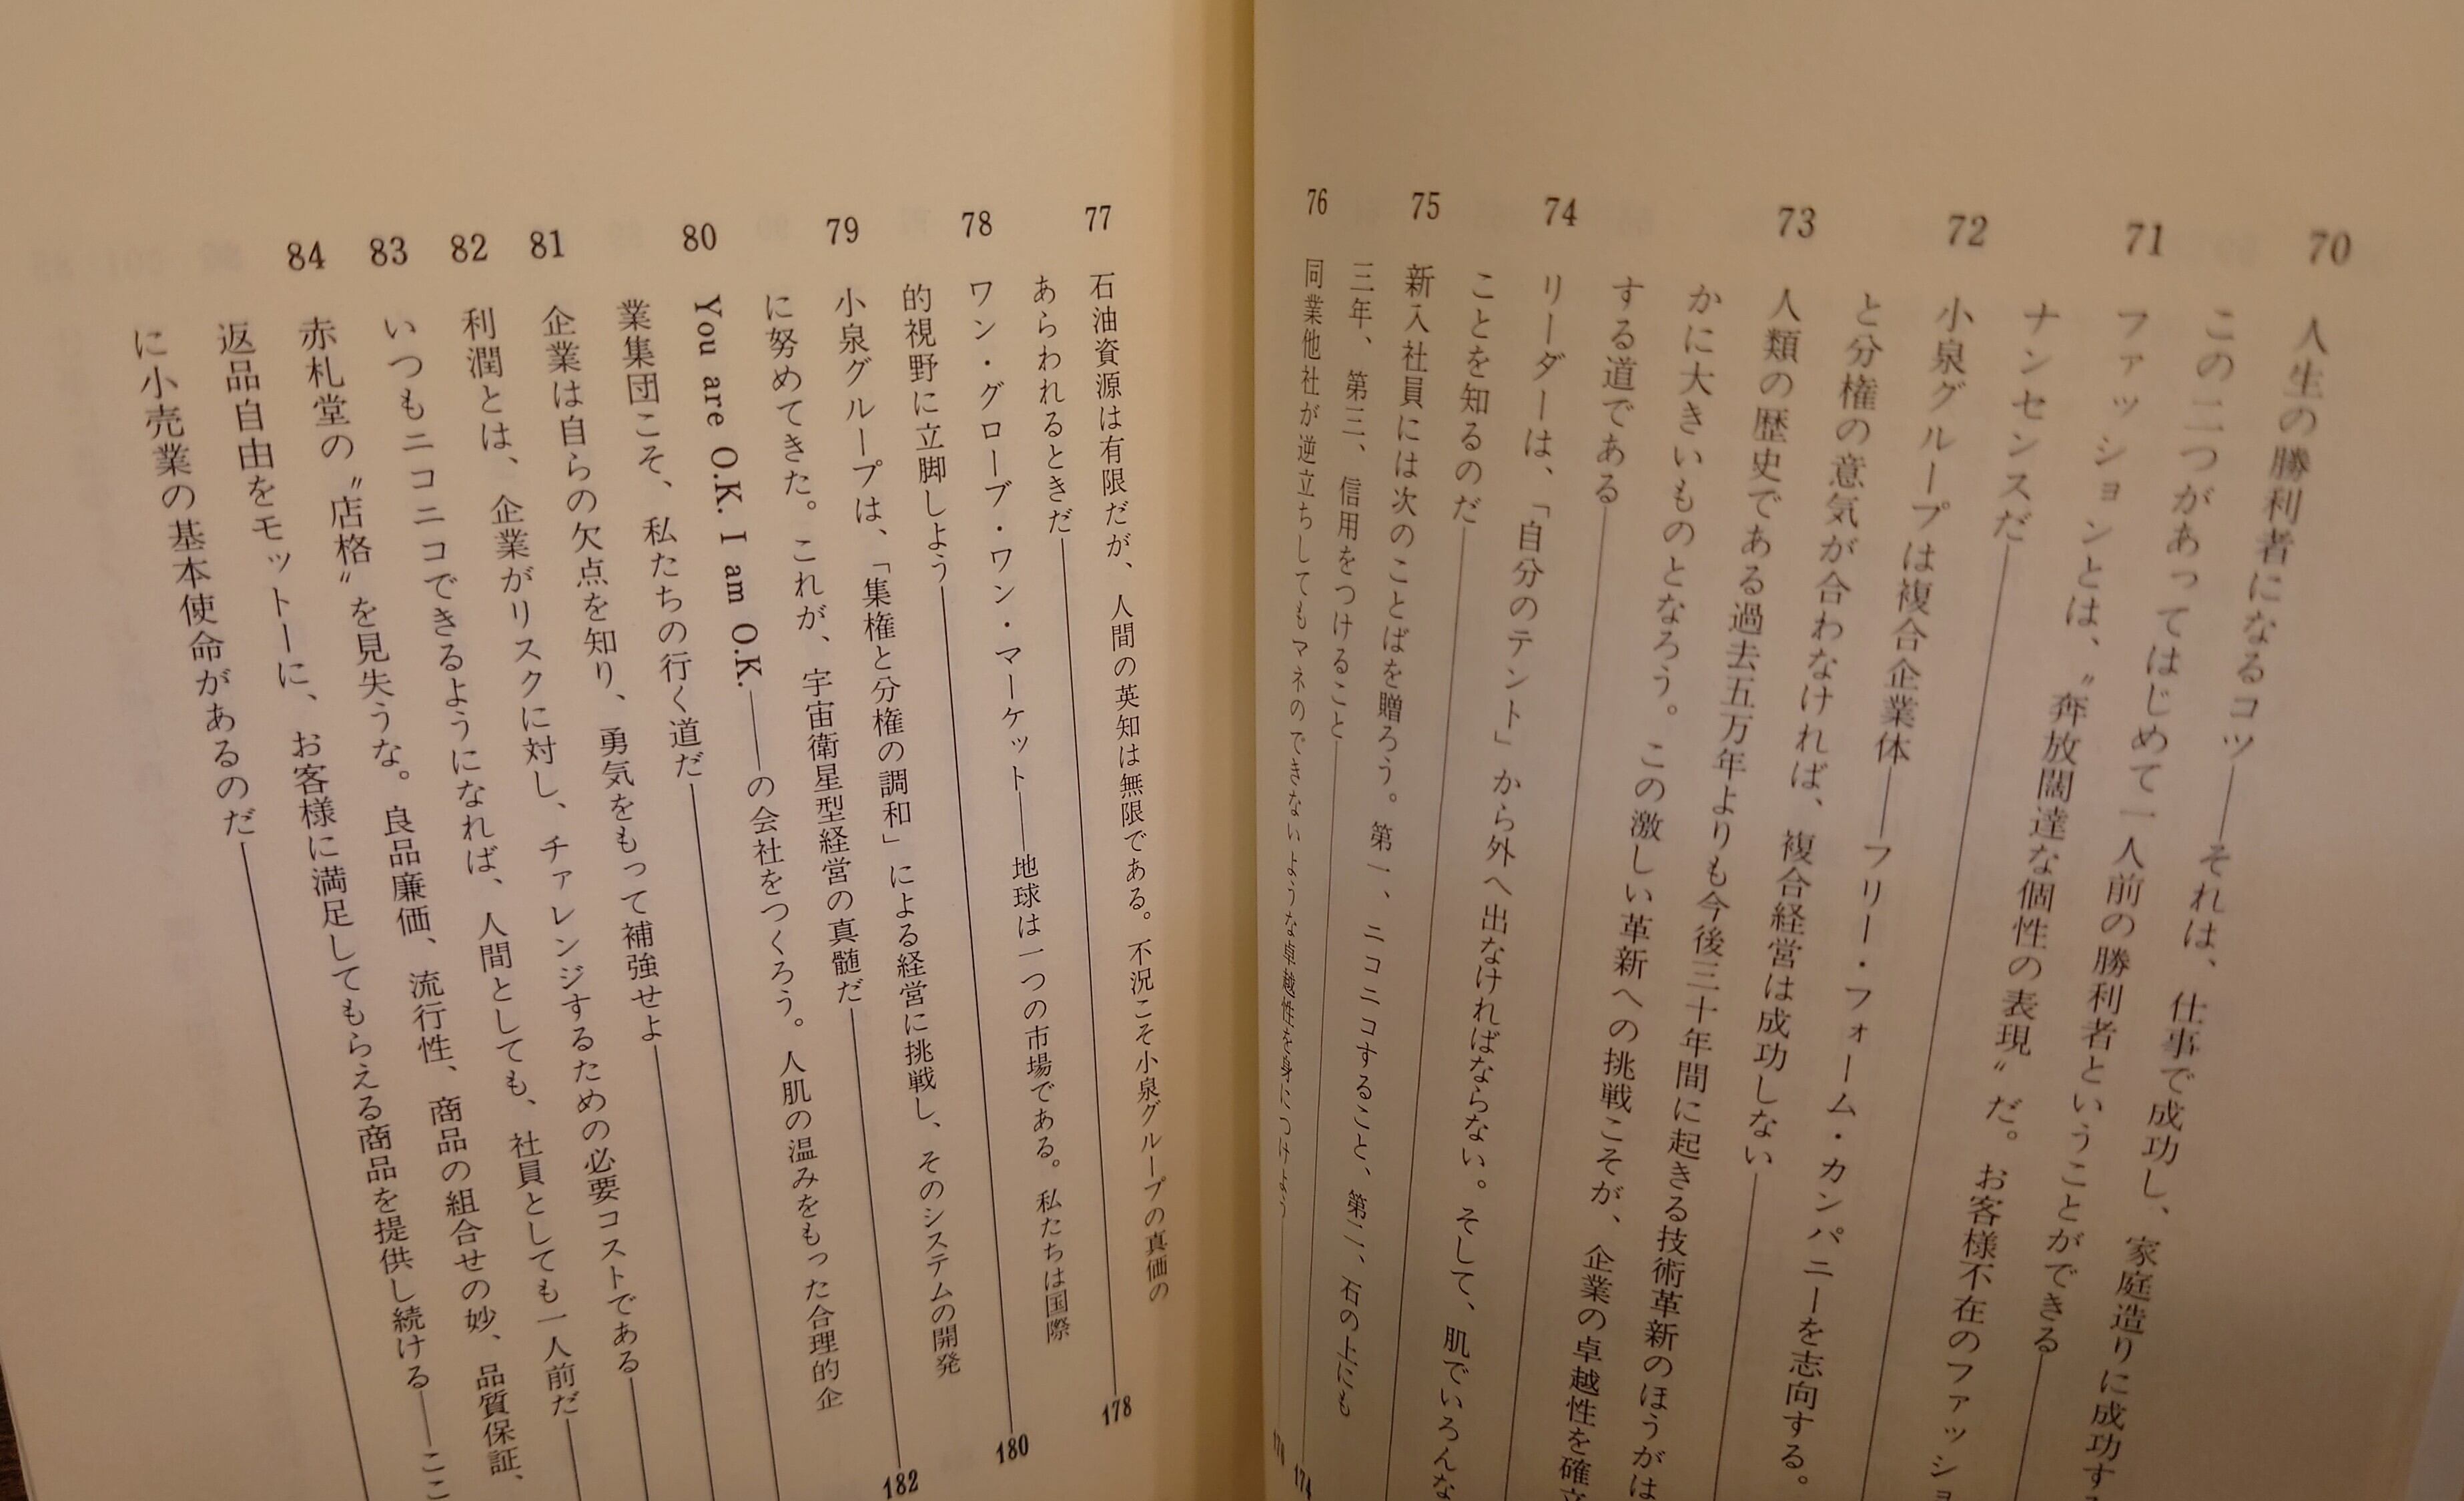 70 人生の勝利者になるコツ――それは、仕事で成功し、家庭造りに成功す
この二つがあってはじめて一人前の勝利者ということができる
71 ファッションとは、〝奔放闊達な個性の表現〟だ。お客様不在のファッショ
ナンセンスだ
72 小泉グループは複合企業体――フリー・フォーム・カンパニーを志向する。
と分権の意気が合わなければ、複合経営は成功しない
73 人類の歴史である過去五万年よりも今後三十年間に起きる技術革新のほうがは
かに大きいものとなろう。この激しい革新への挑戦こそが、企業の卓越性を確立
する道である
74 リーダーは、「自分のテント」から外へ出なければならない。そして、肌でいろんな
ことを知るのだ
75 新入社員には次のことばを贈ろう。第一、ニコニコすること、第二、石の上にも
三年、第三、信用をつけること 174
76 同業他社が逆立ちしてもマネのできないような卓越性を身につけよう 176
77 石油資源は有限だが、人間の英知は無限である。不況こそ小泉グループの真価の
あらわれるときだ 178
78 ワン・グローブ・ワン・マーケット――地球は一つの市場である。私たちは国際
的視野に立脚しよう 180
79 小泉グループは、「集権と分権の調和」による経営に挑戦し、そのシステムの開発
に努めてきた。これが、宇宙衛星型経営の真髄だ 182
80 You are O.K. I am O.K.――の会社をつくろう。人肌の温みをもった合理的企
業集団こそ、私たちの行く道だ
81 企業は自らの欠点を知り、勇気をもって補強せよ
82 利潤とは、企業がリスクに対し、チャレンジするための必要コストである
83 いつもニコニコできるようになれば、人間としても、社員としても一人前だ
84 赤札堂の〝店格〟を見失うな。良品廉価、流行性、商品の組合せの妙、品質保証、
返品自由をモットーに、お客様に満足してもらえる商品を提供し続ける――ここ
に小売業の基本使命があるのだ